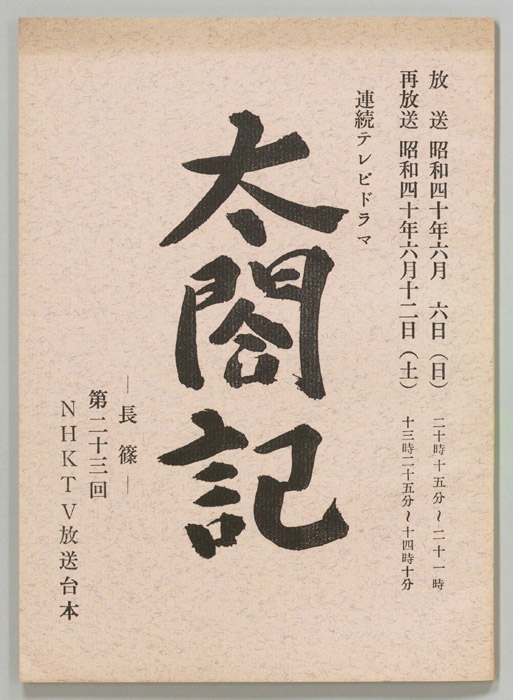 放送 昭和四十年六月 六日(日) 二十時十五分~二十一時
再放送 昭和四十年六月十二日(土) 十三時二十五分~十四時十分
連続テレビドラマ
太閤記
―長篠―
第二十三回
NHKTV放送台本